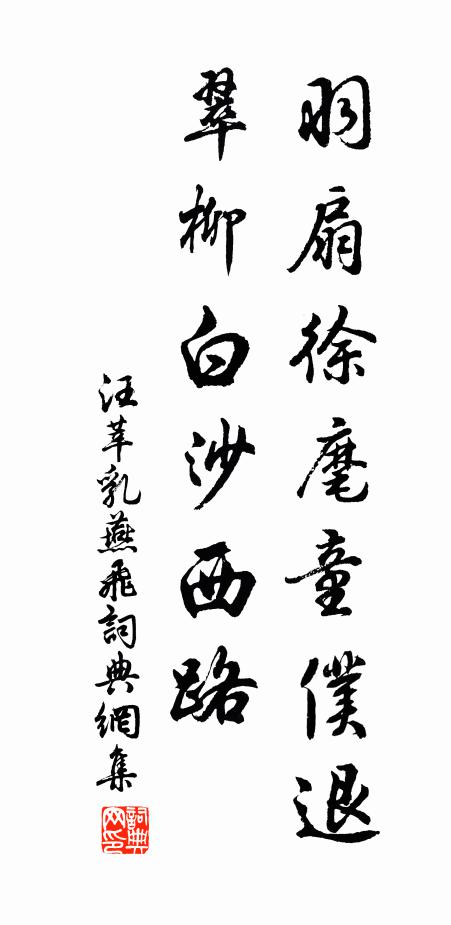 羽扇徐麾童僕退
翠柳白沙西路
汪莘乳燕飛詞典網集
詞典網印